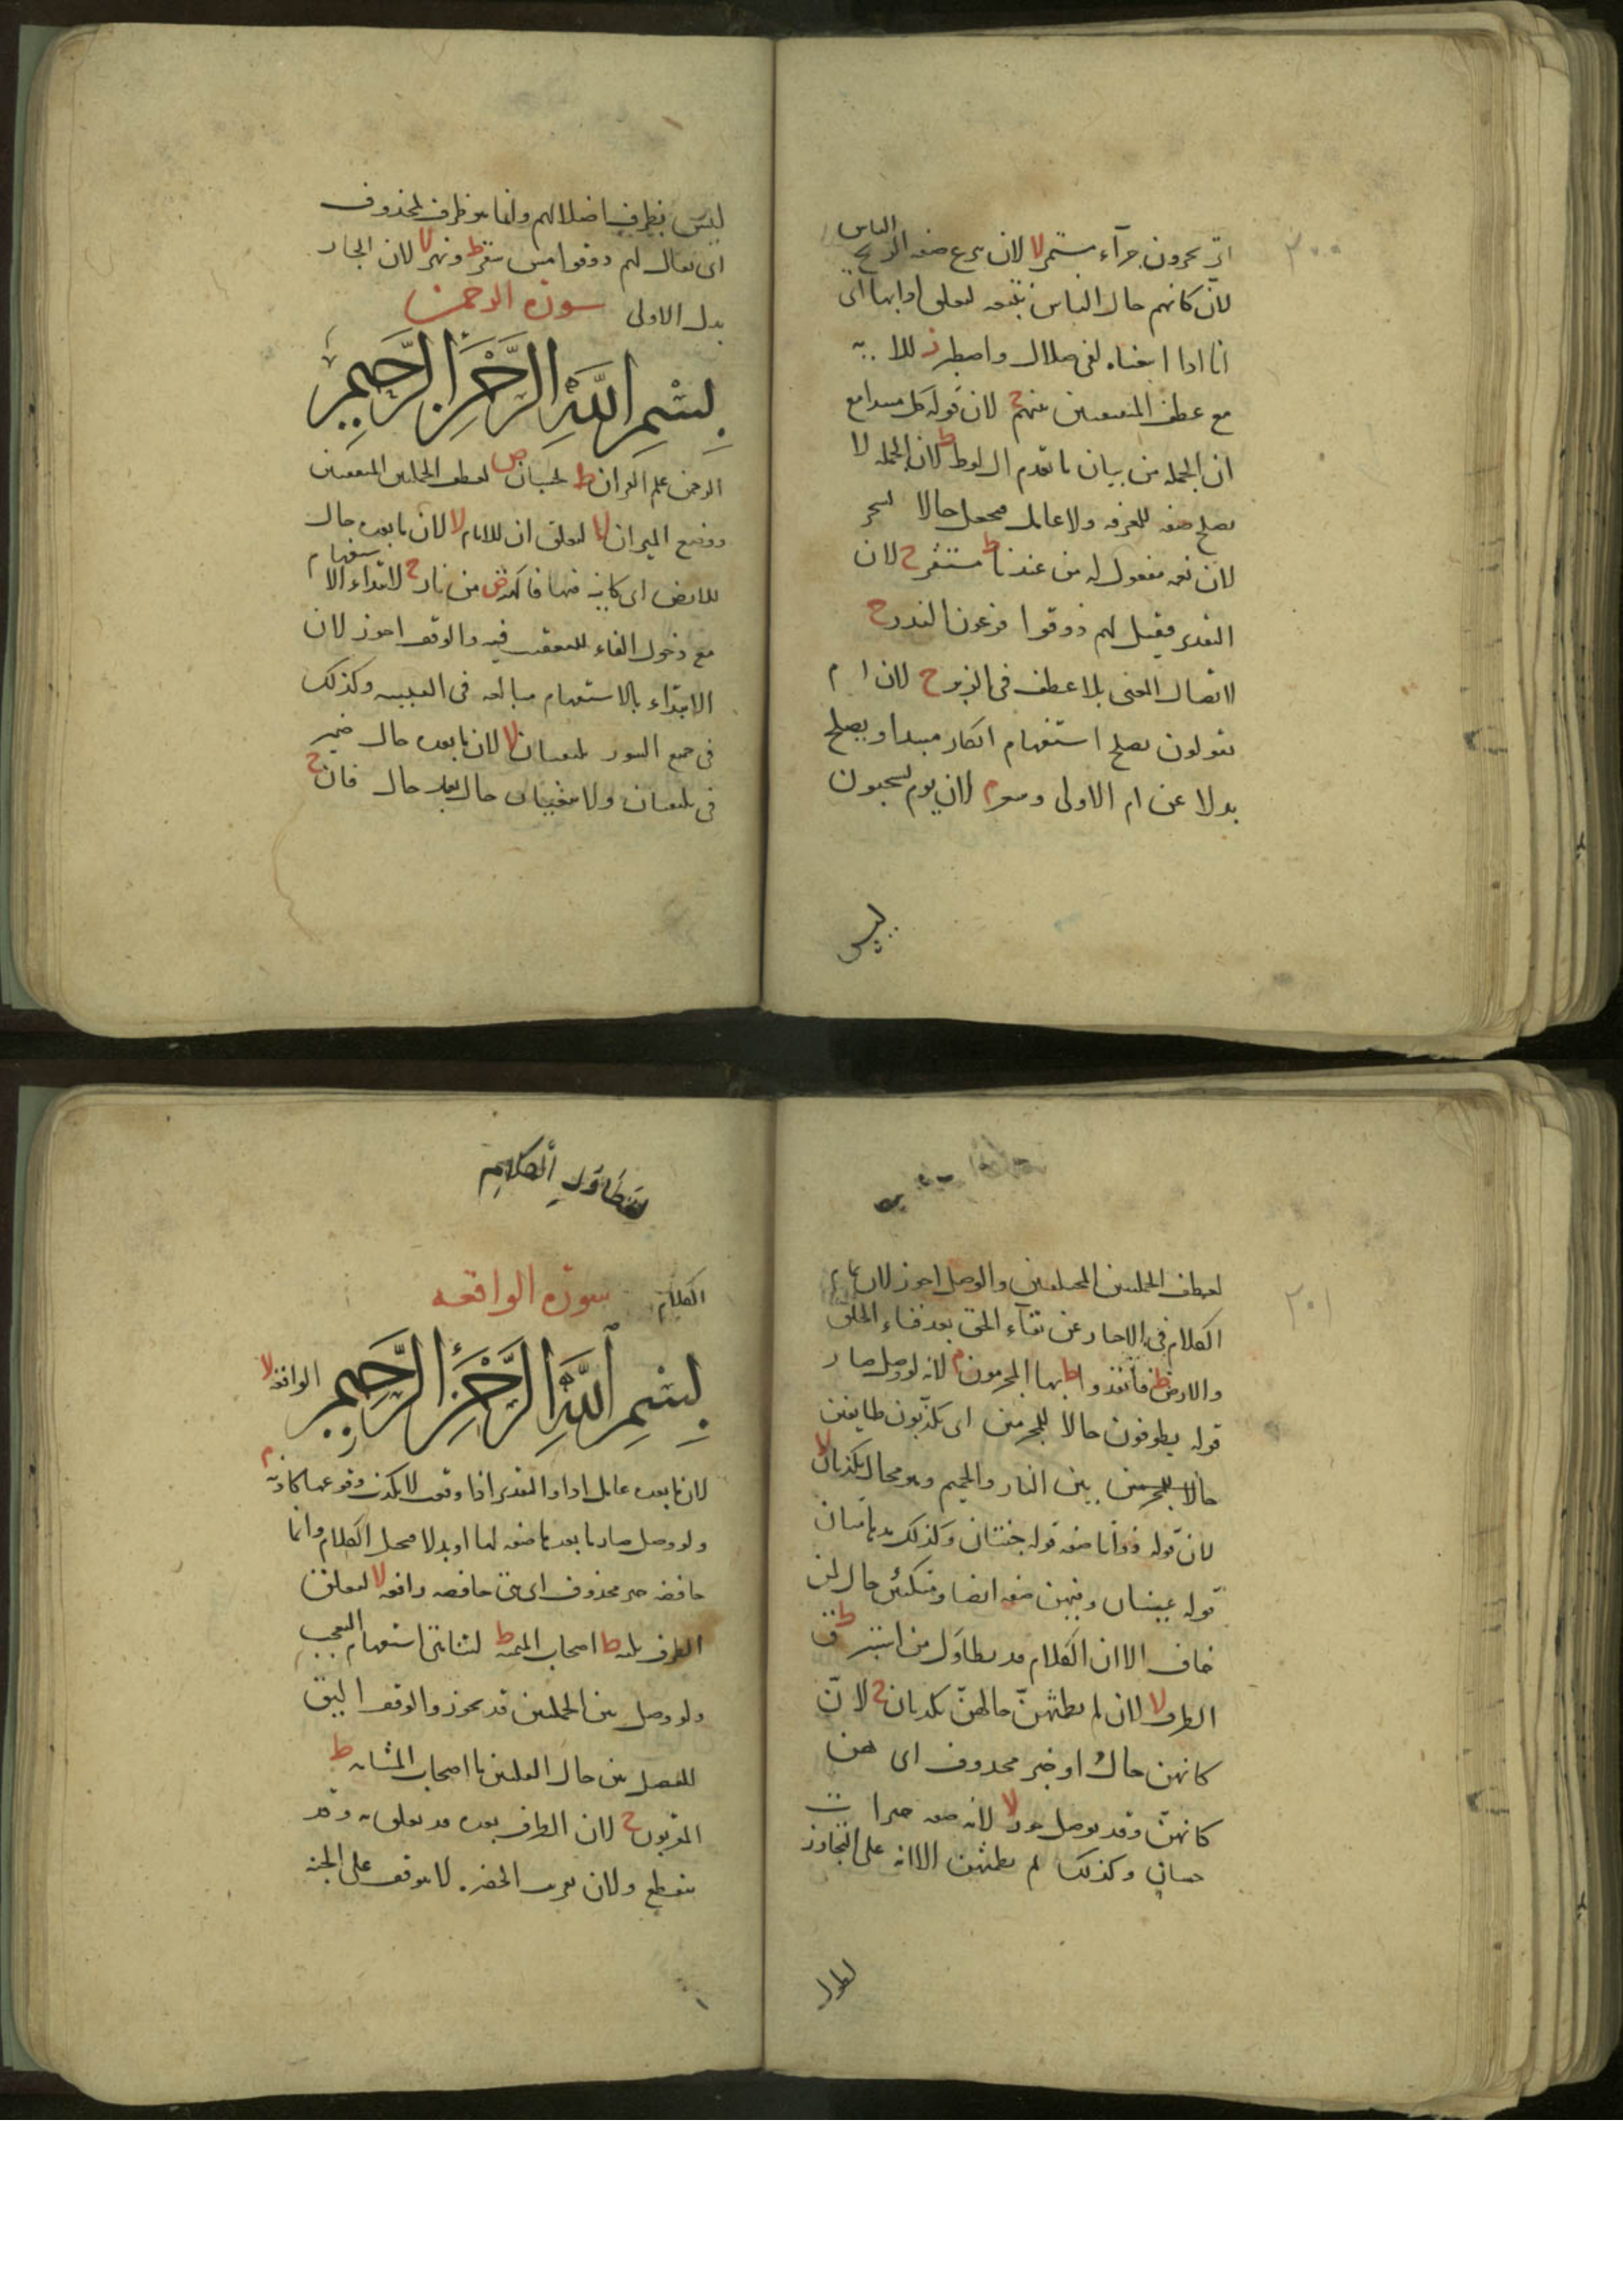 ٢٠٠
الناس
اى يجرون جرآء مستمر لا لان سرع صفه الريح
لان كانهم حال الناس تنتبعه لعلق اوابها اى
انا اذا اتبعناه لفى ضلال واصطبر ز للايه
مع عطف المتفقين بينهم ج لان قوله كل مبتدا مع
ان الجمله من بيان ما تقدم ال لوط ط لان الجمله لا
يصلح صفه للمعرفه ولا عامل فيجعل حالا بسحر
لان نعمه مفعول له من عندنا ط مستقر ج لان
التقدير فقيل لهم ذوقوا فرعون النذر ج
لاتصال المعنى بلا عطف فى الزبر ج لان ام
يقولون يصلح استفهام انكار مبتدا ويصلح
بدلا عن ام الاولى وسعر م لان يوم يسحبون
ليس
ليس بظرف اضلالهم وانما هو ظرف لمحذوف
اى يقال لهم ذوقوا مس سقر ط ونهر لا لان الجار
بدل الاولى سورة الرحمن
بسم الله الرحمن الرحيم
الرحمن علم القران ط بحسبان ص لعطف الجملتين المتفقتين
ووضع الميزان لا لتعلق ان للانام لا لان ما بعده حال
للارض اى كاينه فيها فاكهه ص من نار ج لابتداء الاستفهام
مع دخول الفاء للتعقيب فيه والوقف اجوز لان
الابتداء بالاستفهام مبالغه فى التنبيه وكذلك
فى جميع السور يلتقيان لا لان ما بعده حال ضمير
فى يلتقيان ولا يبغيان حال بعد حال فان ج
٢٠١
لعطف الجملتين المختلفتين والوصل اجوز لان تمام
الكلام فى الاخبار عن بقآء الحق بعد فناء الخلق
والارض ط فانفذوا ط بها المجرمون م لانه لو وصل صار
قوله يطوفون حالا للمجرمين اى يكذبون طايفين
حالا للمجرمين بين النار والحميم وهو محال تكذبان لا
لان قوله ذواتا صفه قوله جنتان وكذلك مدهامتان
قوله عينان وفيهن صفه ايضا ومتكئين حال لمن
خاف الا ان الكلام قد يطاول من استبرق ط
الطرف لا لان لم يطمثهن حالهن تكذبان ج لان
كانهن حال او خبر محذوف اى هن
كانهن وقد يوصل حور لا لانه صفه خيرات
حسان وكذلك لم يطمثهن الا انه على التجاوز
لطول
لتطاول الكلام
الكلام سورة الواقعه
بسم الله الرحمن الرحيم الواقعه لا
لان ما بعده عامل اذا والتقدير اذا وقعت لا يكذب وقوعها كاذبه م
ولو وصل صار ما بعدها صفه لها او بدلا فيحيل الكلام وانما
خافضه خبر محذوف اى هى خافضه رافعه لا لتعلق
الظرف ثلثه ط اصحاب الميمنه ط لتناهى استفهام التعجب
ولو وصل بين الجملتين قد يجوز والوقف اليق
للفصل بين حال القبيلتين ما اصحاب المشئمه ط
المقربون ج لان الظرف بعده قد يعلق به وقد
ينقطع ولان يعرب الخضر لا يوقف على الجنه